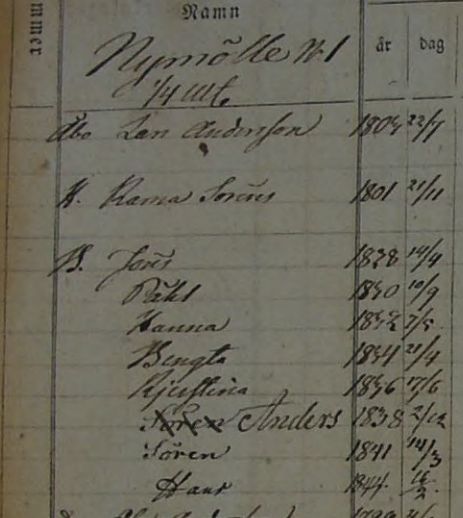 mmer
Namn
år dag
Nymölle N 1
1/4 Mt.
Åbo Lars Andersson 1803 22/7
H. Rama Sörens 1801 21/11
B. Jöns 1828 14/4
Påhl 1830 10/9
Hanna 1832 7/5
Bengta 1834 21/4
Kjerstina 1836 17/6
Sören Anders 1838 2/12
Sören 1841 14/3
Hans 1844